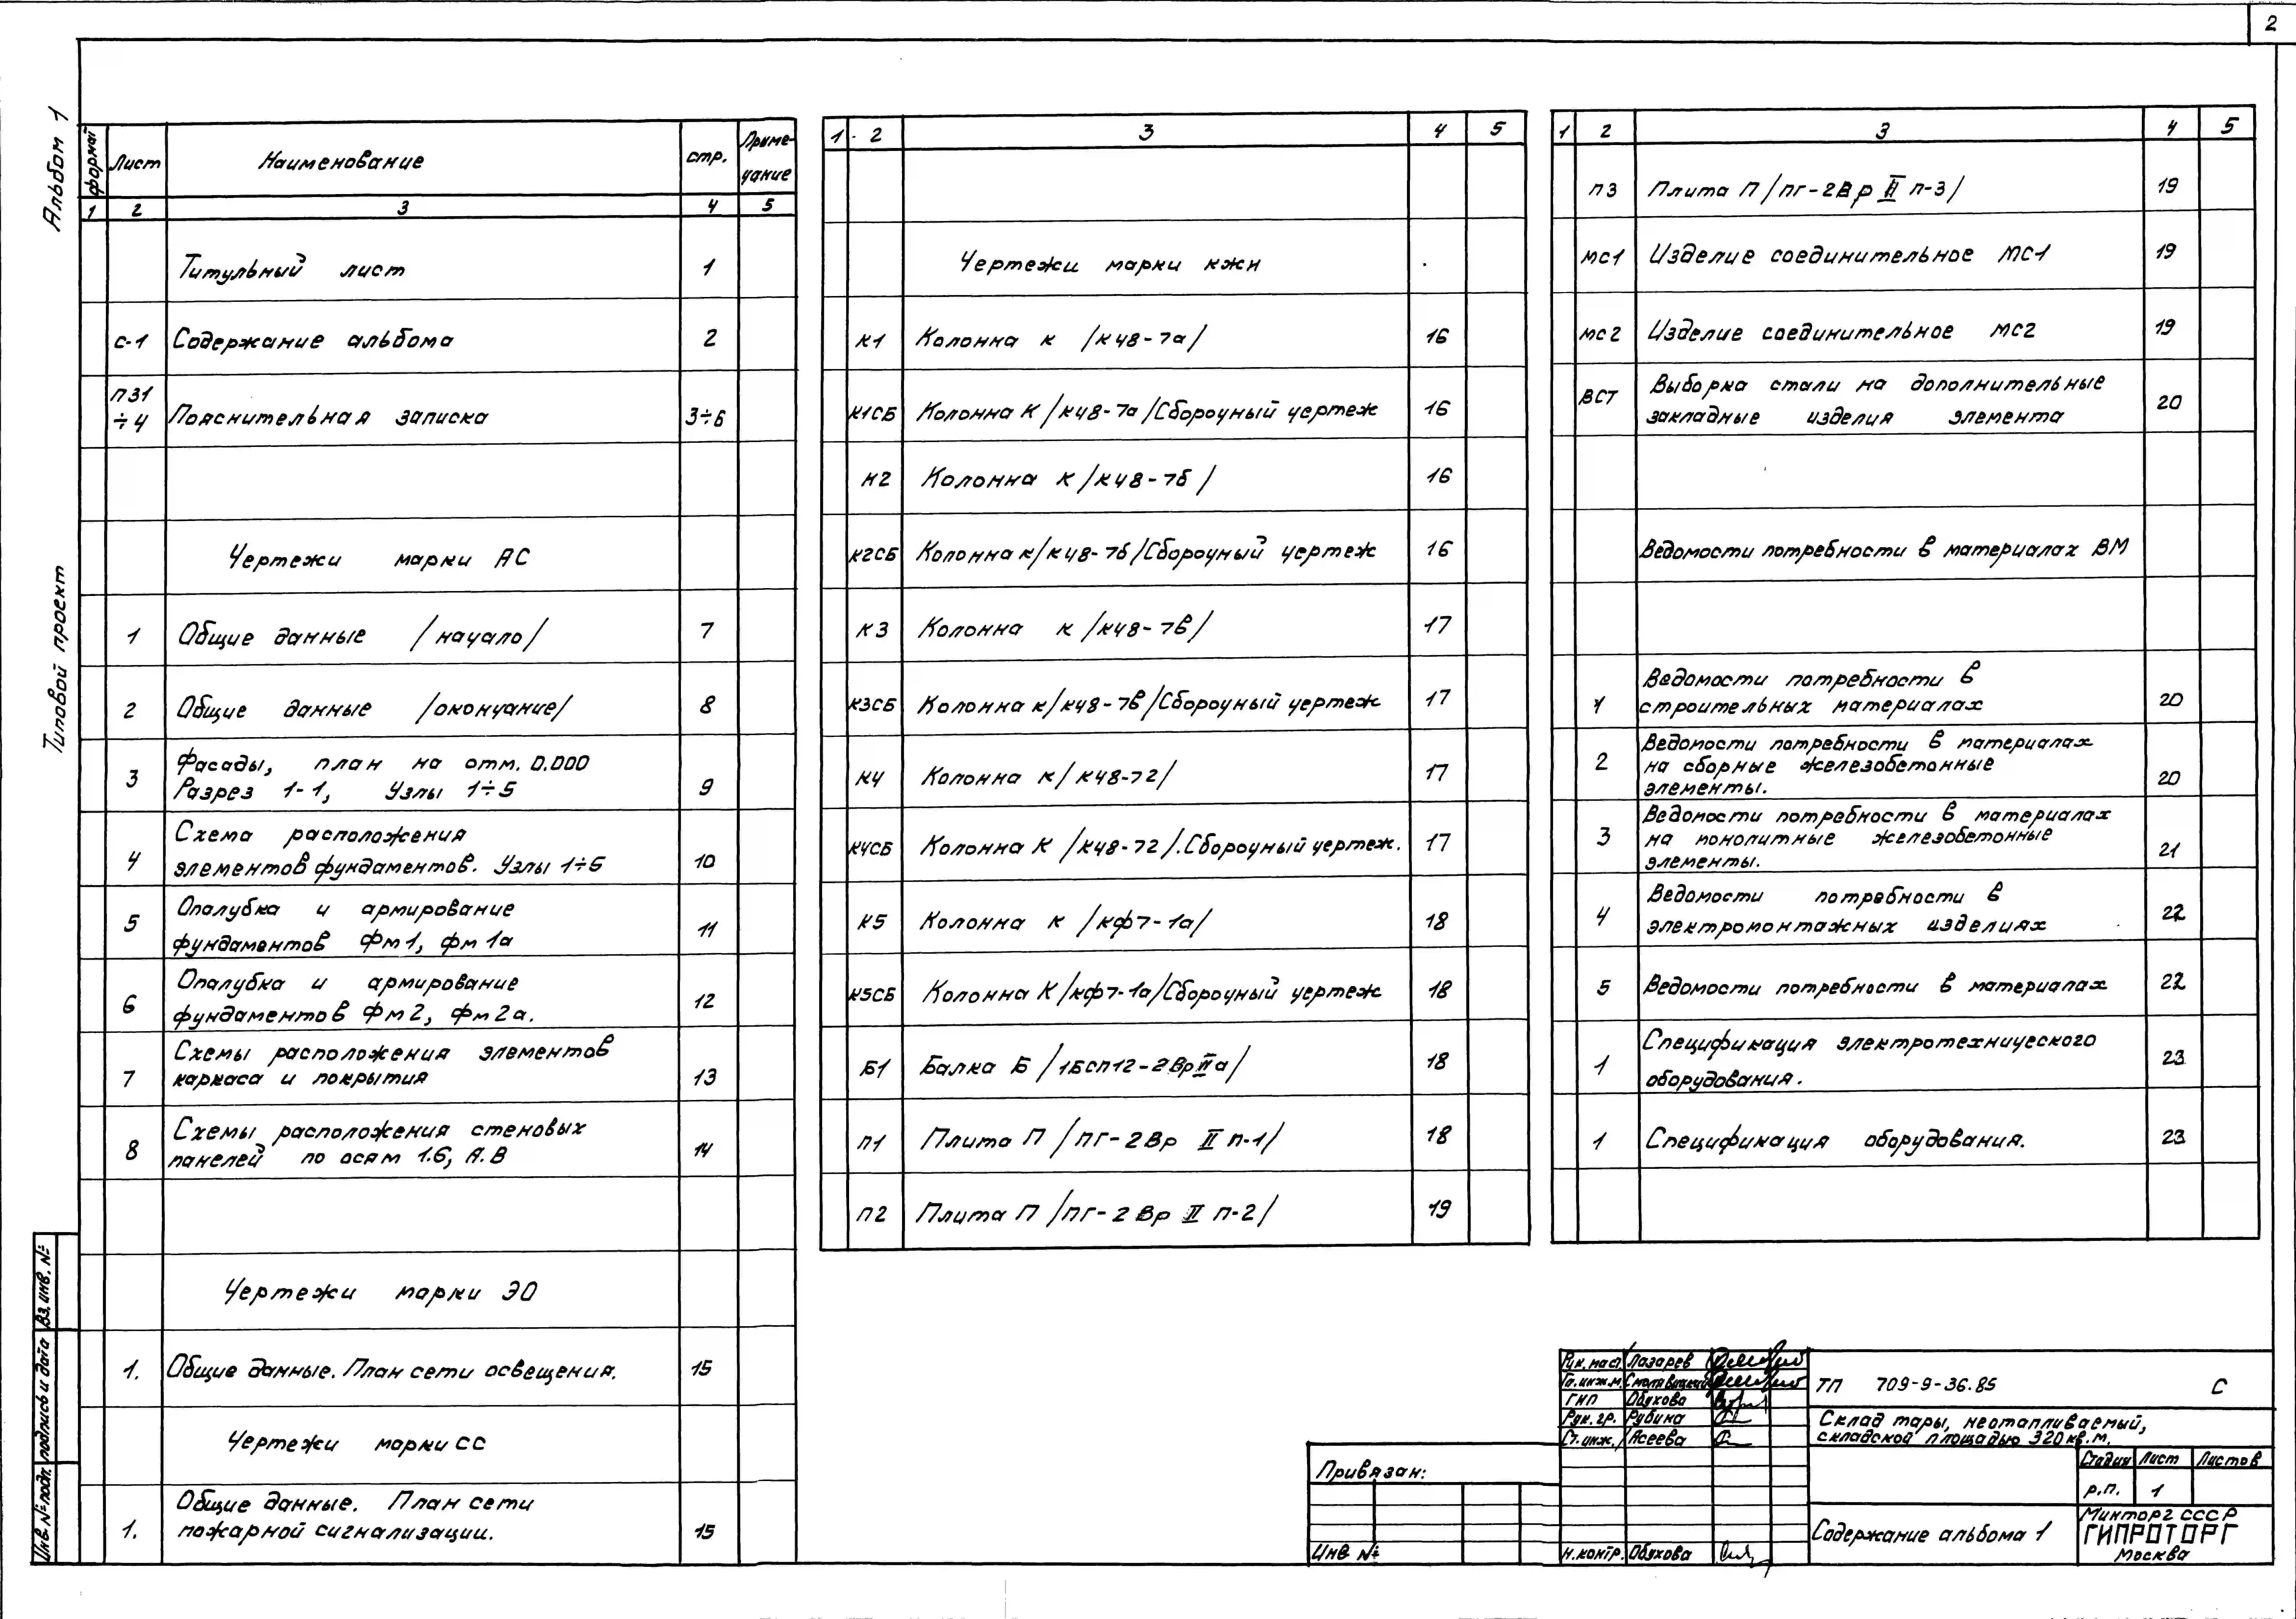 2
Альбом 1
Типовой проект
формат Лист Наименование стр. Приме-
чание
1 2 3 4 5
Титульный лист 1
С-1 Содержание альбома 2
ПЗ1
÷4 Пояснительная записка 3÷6
Чертежи марки АС
1 Общие данные /начало/ 7
2 Общие данные /окончание/ 8
3 Фасады, план на отм. 0.000
Разрез 1-1, Узлы 1÷5 9
Схема расположения
4 элементов фундаментов. Узлы 1÷6 10
5 Опалубка и армирование
фундаментов Фм1, фм 1а 11
6 Опалубка и армирование
фундаментов Фм2, Фм2а. 12
Схемы расположения элементов
7 каркаса и покрытия 13
Схемы расположения стеновых
8 панелей по осям 1.6, А.В 14
Чертежи марки ЭО
1. Общие данные. План сети освещения. 15
Чертежи марки СС
Общие данные. План сети
1. пожарной сигнализации. 15
1 2 3 4 5
Чертежи марки КЖИ
К1 Колонна К /К48-7а/ 16
К1СБ Колонна К /К48-7а/Сборочный чертеж 16
К2 Колонна К /К48-7б/ 16
К2СБ Колонна К/К48-7б/Сборочный чертеж 16
К3 Колонна К /К48-7в/ 17
К3СБ Колонна К/К48-7в/Сборочный чертеж 17
К4 Колонна К/К48-7г/ 17
К4СБ Колонна К /К48-7г/.Сборочный чертеж. 17
К5 Колонна К /Кф7-1а/ 18
К5СБ Колонна К /Кф7-1а/Сборочный чертеж 18
Б1 Балка Б /1БСП12-2ВрIIа/ 18
П1 Плита П /ПГ-2Вр II п-1/ 18
П2 Плита П /ПГ-2Вр II п-2/ 19
1 2 3 4 5
П3 Плита П /ПГ-2Вр II п-3/ 19
МС1 Изделие соединительное МС-1 19
МС2 Изделие соединительное МС2 19
ВСТ Выборка стали на дополнительные
закладные изделия элемента 20
Ведомости потребности в материалах ВМ
Ведомости потребности в
1 строительных материалах 20
Ведомости потребности в материалах
2 на сборные железобетонные
элементы. 20
Ведомости потребности в материалах
3 на монолитные железобетонные
элементы. 21
Ведомости потребности в
4 электромонтажных изделиях 22
5 Ведомости потребности в материалах 22
Спецификация электротехнического
1 оборудования. 23
1 Спецификация оборудования. 23
Инв.№подл. Подпись и дата Вз.инв.№
Привязан:
Инв №
Рук.маст. Лазарев
Гл.инж.м.
ГИП Обухова
Рук.гр. Рубина
Ст.инж. Асеева
Н.контр. Обухова
ТП 709-9-36.85 С
Склад тары, неотапливаемый,
складской площадью 320кв.м.
Стадия Лист Листов
р.п. 1
Содержание альбома 1
Минторг СССР
ГИПРОТОРГ
Москва